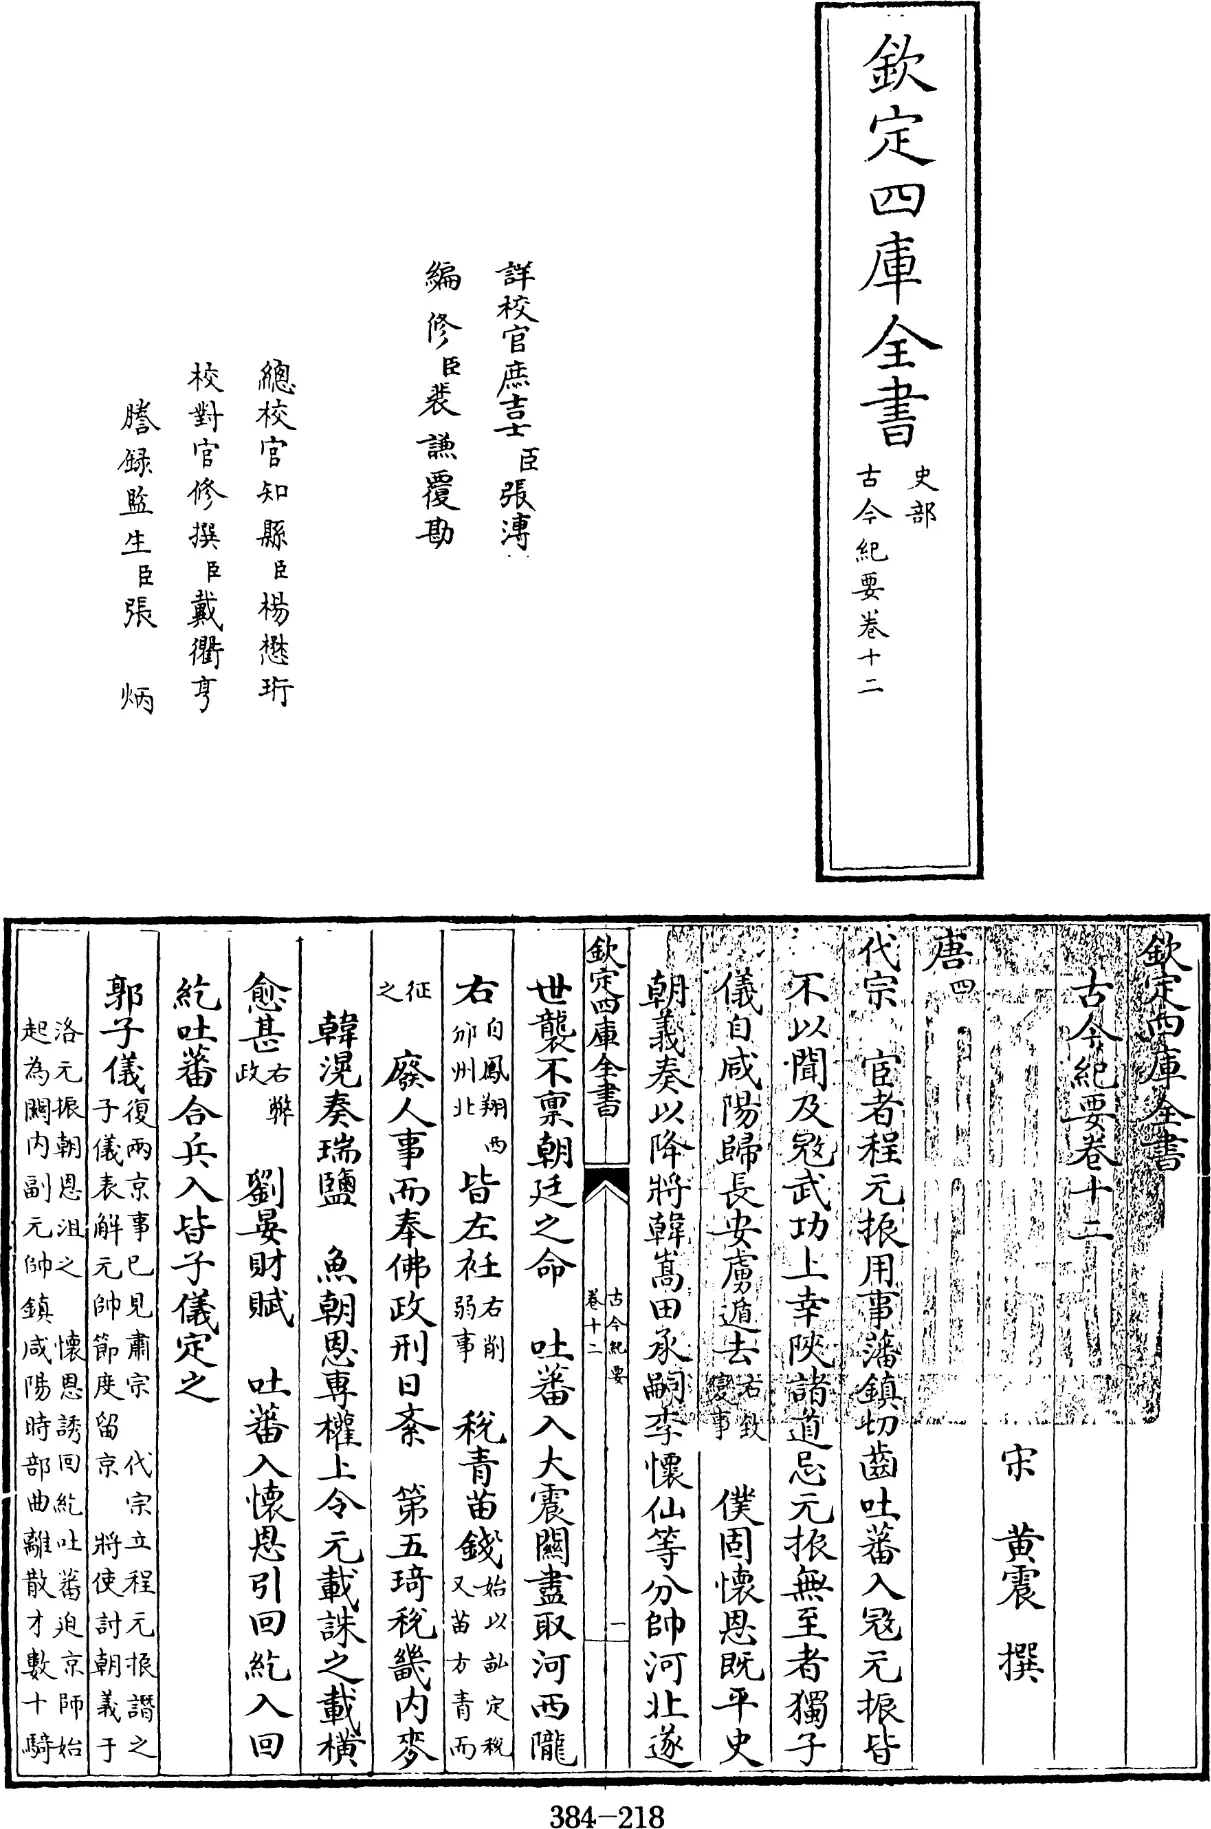 欽定四庫全書
史部
古今紀要卷十二
詳校官庶吉士臣張溥
編修臣裴謙覆勘
總校官知縣臣楊懋珩
校對官修撰臣戴衢亨
謄錄監生臣張炳
欽定四庫全書
古今紀要卷十二
宋 黃震 撰
唐四
代宗 宦者程元振用事藩鎮切齒吐蕃入冦元振皆
不以聞及冦武功上幸陜諸道忌元振無至者獨子
儀自咸陽歸長安虜遁去右敘變事 僕固懷恩既平史
朝義奏以降將韓嵩田承嗣李懷仙等分帥河北遂
欽定四庫全書
古今紀要
卷十二
一
世襲不禀朝廷之命 吐蕃入大震關盡取河西隴
右自鳳翔西邠州北皆左衽右削弱事 稅青苗錢始以畝定稅又苗方青而
征之 廢人事而奉佛政刑日紊 第五琦稅畿内麥
韓滉奏瑞鹽 魚朝恩專權上令元載誅之載橫
愈甚右弊政 劉晏財賦 吐蕃入懷恩引回紇入回
紇吐蕃合兵入皆子儀定之
郭子儀復兩京事已見肅宗 代宗立程元振譖之子儀表解元帥節度留京 將使討朝義于
洛元振朝恩沮之 懷恩誘回紇吐蕃迫京師始起為關内副元帥鎮咸陽時部曲離散才數十騎
384-218